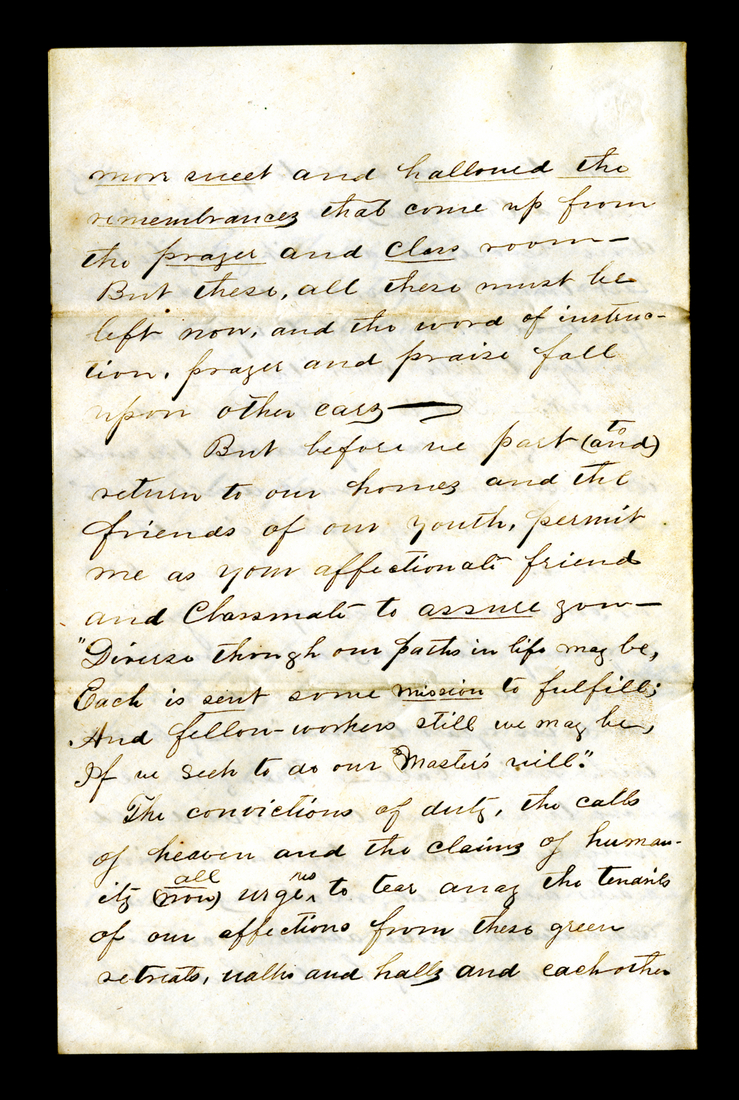 more sweet and hallowed the
remembrances that come up from
the prayer and class room—
But these, all these must be
left now, and the word of instruc-
tion, prayer and praise fall
upon other ears—
But before we part (and) to
return to our homes and the
friends of our youth, permit
me as your affectionate friend
and Classmate to assure you—
"Diverse though our paths in life may be,
Each is sent some mission to fulfill;
And fellow-workers still we may be,
If we seek to do our Master's will."
The convictions of duty, the calls
of heaven and the claims of human-
ity (now) all urge us to tear away the tendrils
of our affections from these green
retreats, walks and halls and each other